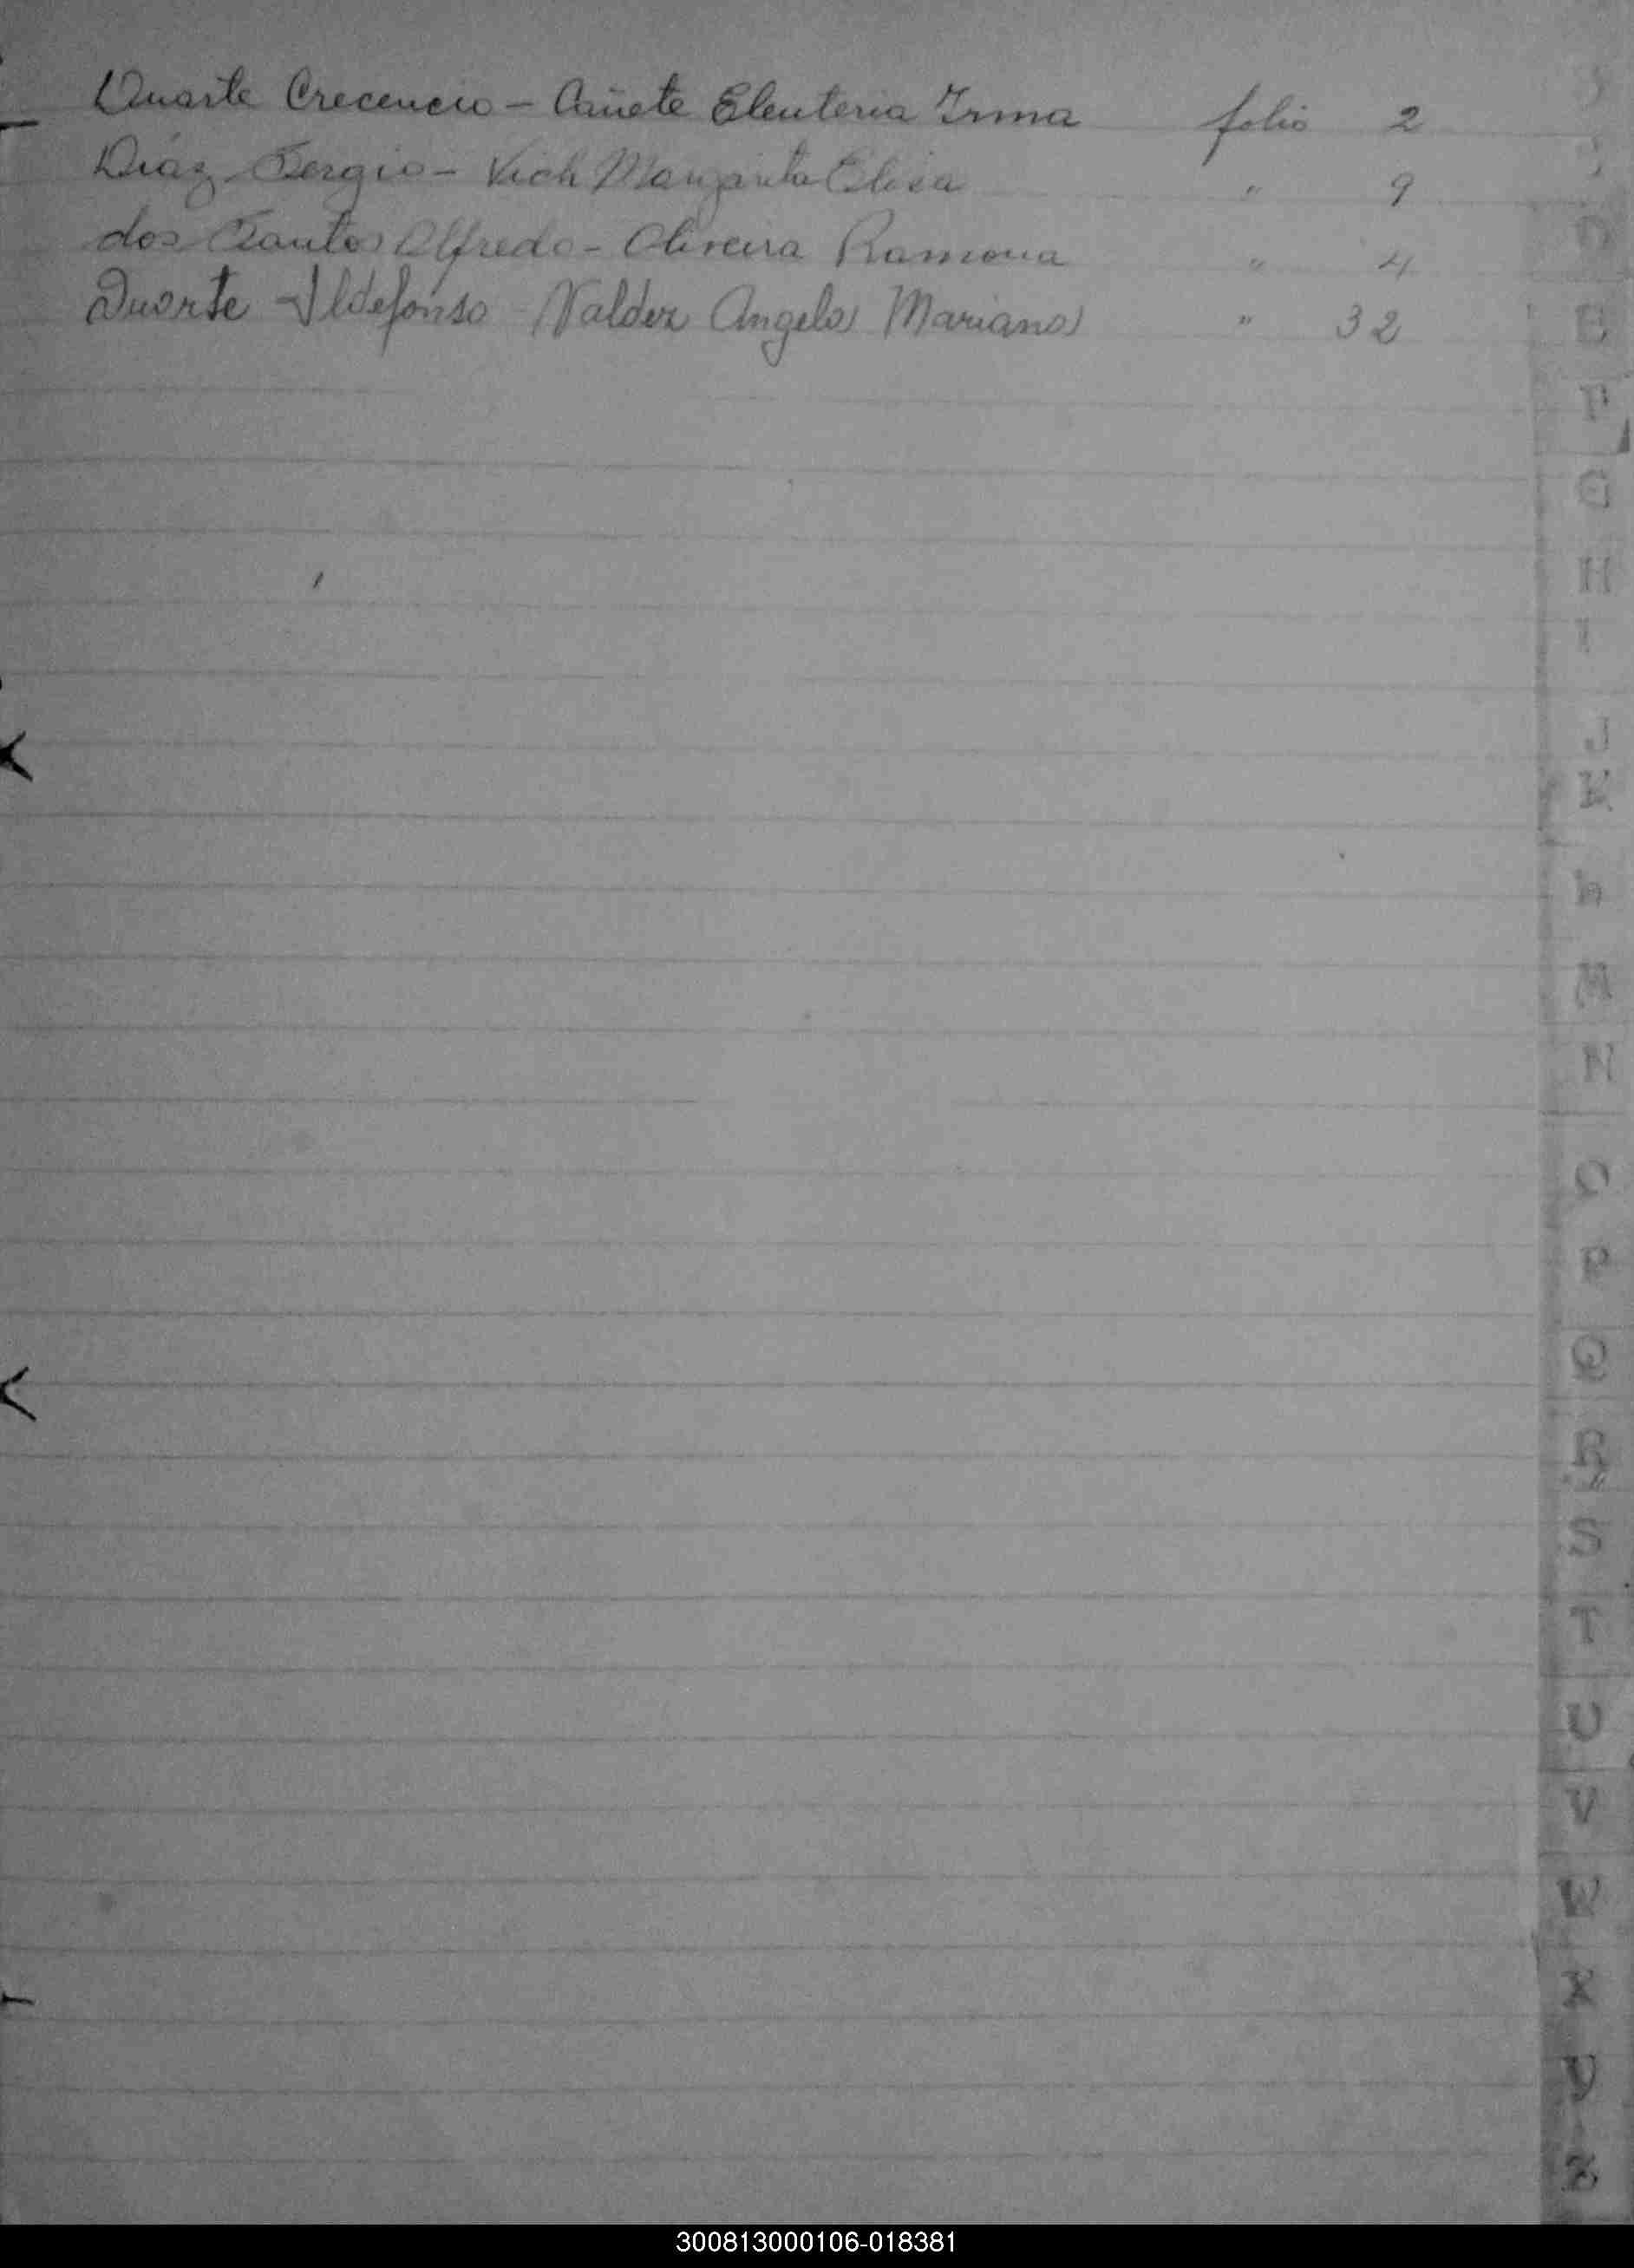 Duarte Crecencio - Cañete Eleuteria Irma folio 2
Díaz Sergio - Vich Margarita Elisa " 9
dos Santos Alfredo - Oliveira Ramona " 4
Duarte Ildefonso - Valdez Angela Mariana " 32
D
E
F
G
H
I
J
K
L
M
N
O
P
Q
R
S
T
U
V
W
X
Y
Z
300813000106-018381